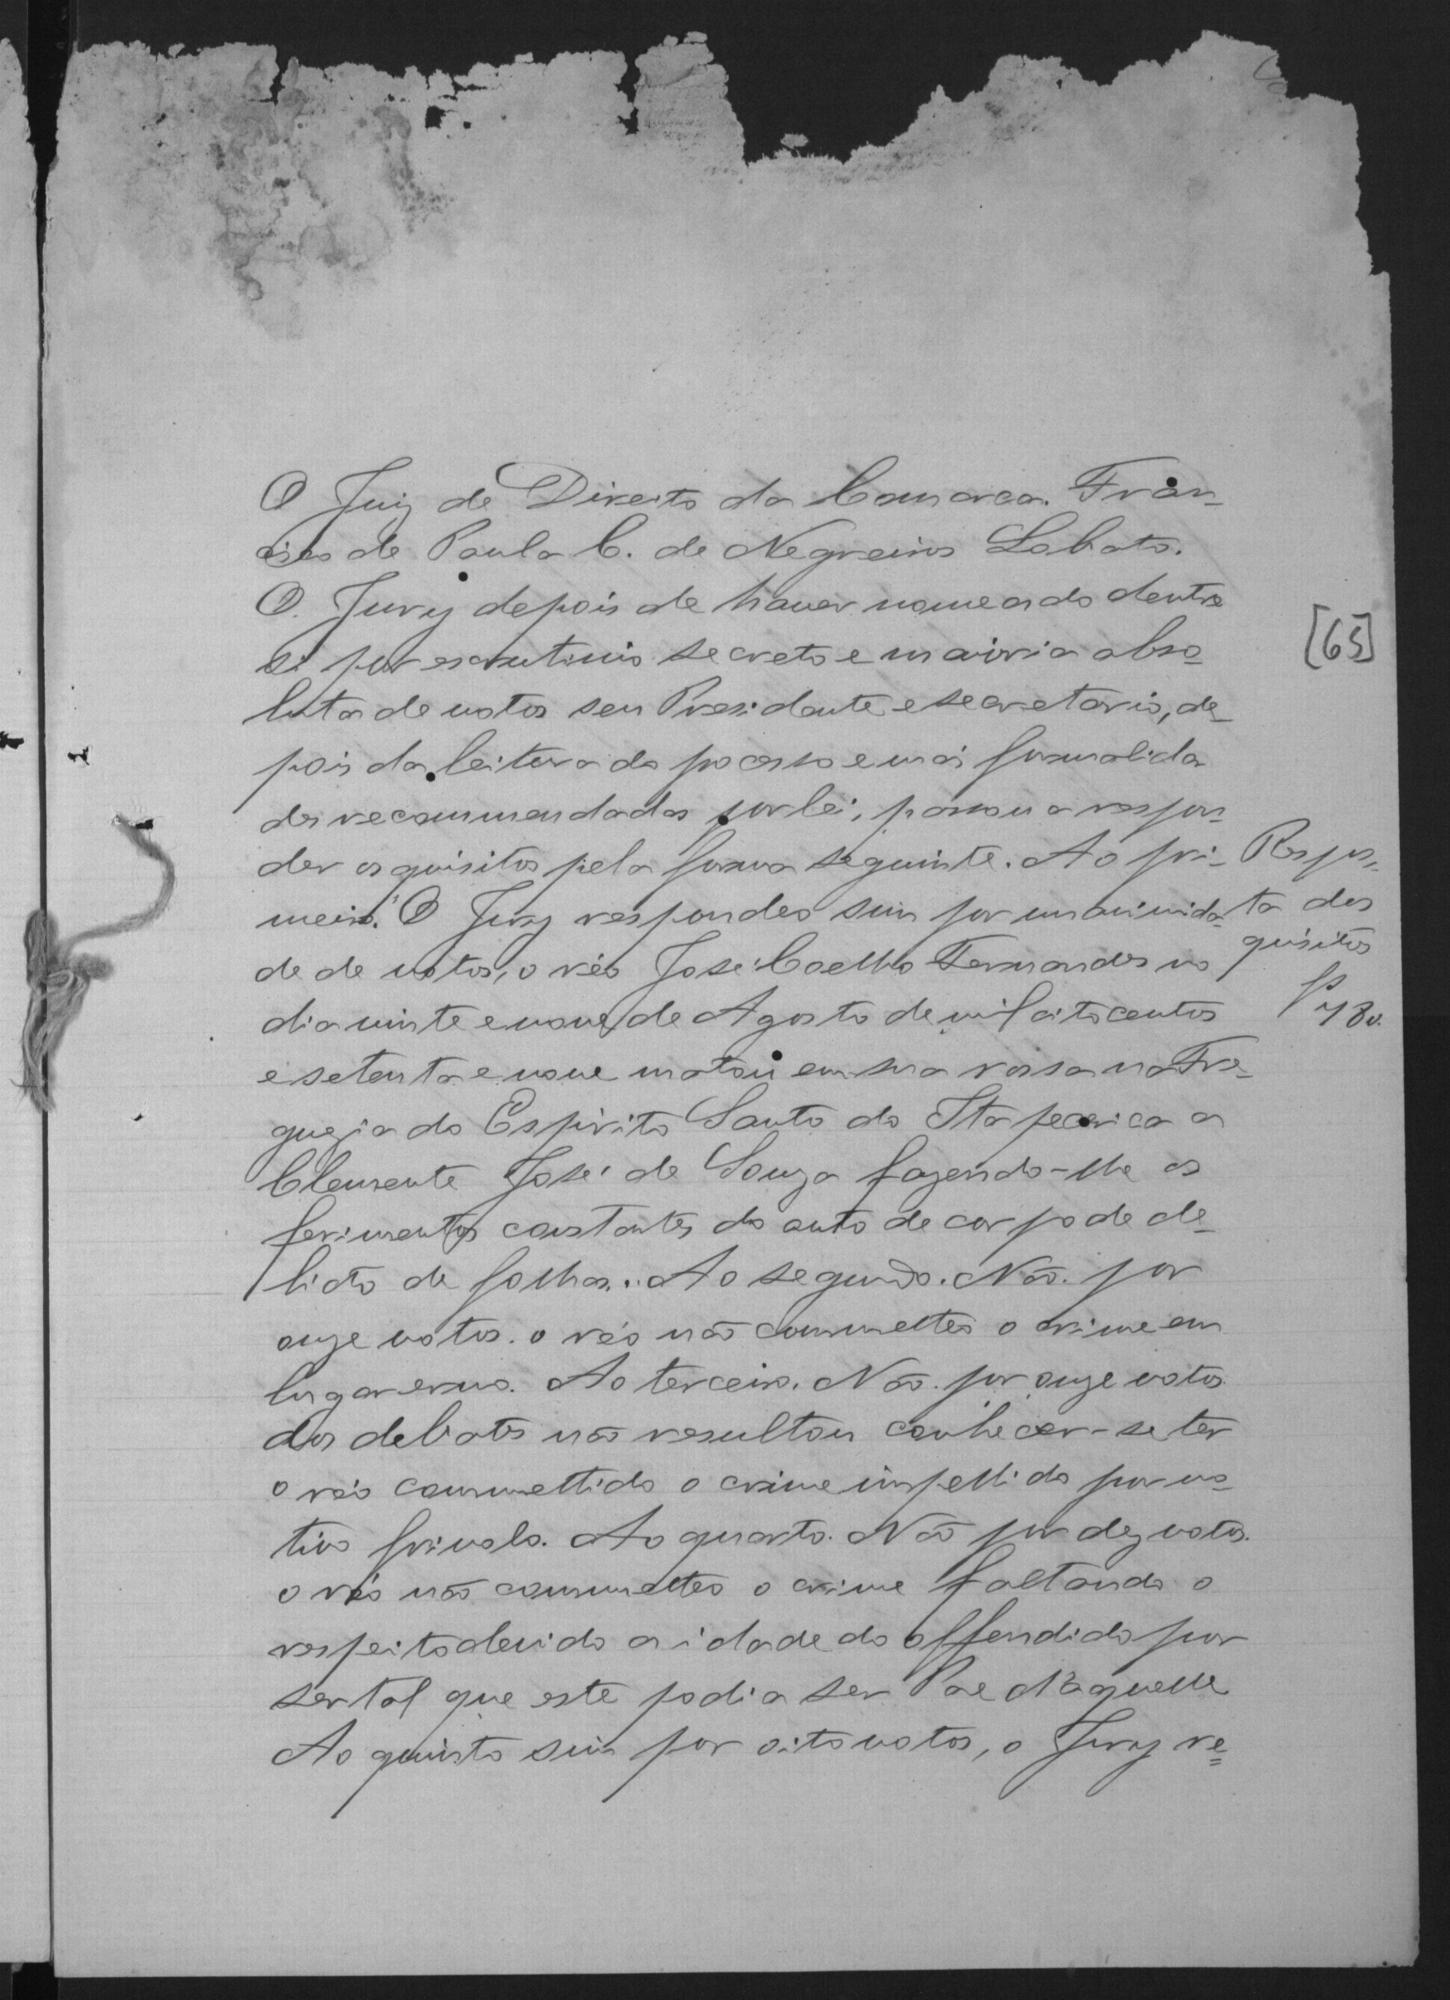 O Juiz de Direito da Comarca. Fran-
cisco de Paula C. de Negreiros Lobato.
O Jury depois de haver nomeado dentre
si por escrutinio secreto e maioria abso-
luta de votos seu Presidente e secretario, de-
pois da leitura do pocesso e mais formalida
des recommendadas por lei, passou a respon-
der os quisitos pela forma seguinte. Ao pri-
meiro. O Jury respondeo sim por unanimida-
de de votos, o réo José Coelho Fernandes no
dia vinte e nove de Agosto de mil oitocentos
e setenta e nove matou em sua rossa na Fre-
guezia do Espirito Santo do Itapecerica a
Clemente José de Souza fazendo-lhe os
ferimentos constantes do auto de corpo de de-
licto de folhas. Ao segundo. Não. por
onze votos. o réo não commetteo o crime em
lugar ermo. Ao terceiro. Não. por onze votos
dos debates não resultou conhecer-se ter
o réo commettido o crime impellido por mo-
tivo frivolo. Ao quarto. Não por dez votos.
o réo não commetteo o crime faltando o
respeito devido a idade do offendido por
ser tal que este podia ser Pae d'aquelle
Ao quinto sim por oito votos, o Jury re=
[65]
Respos-
ta dos
quisitos